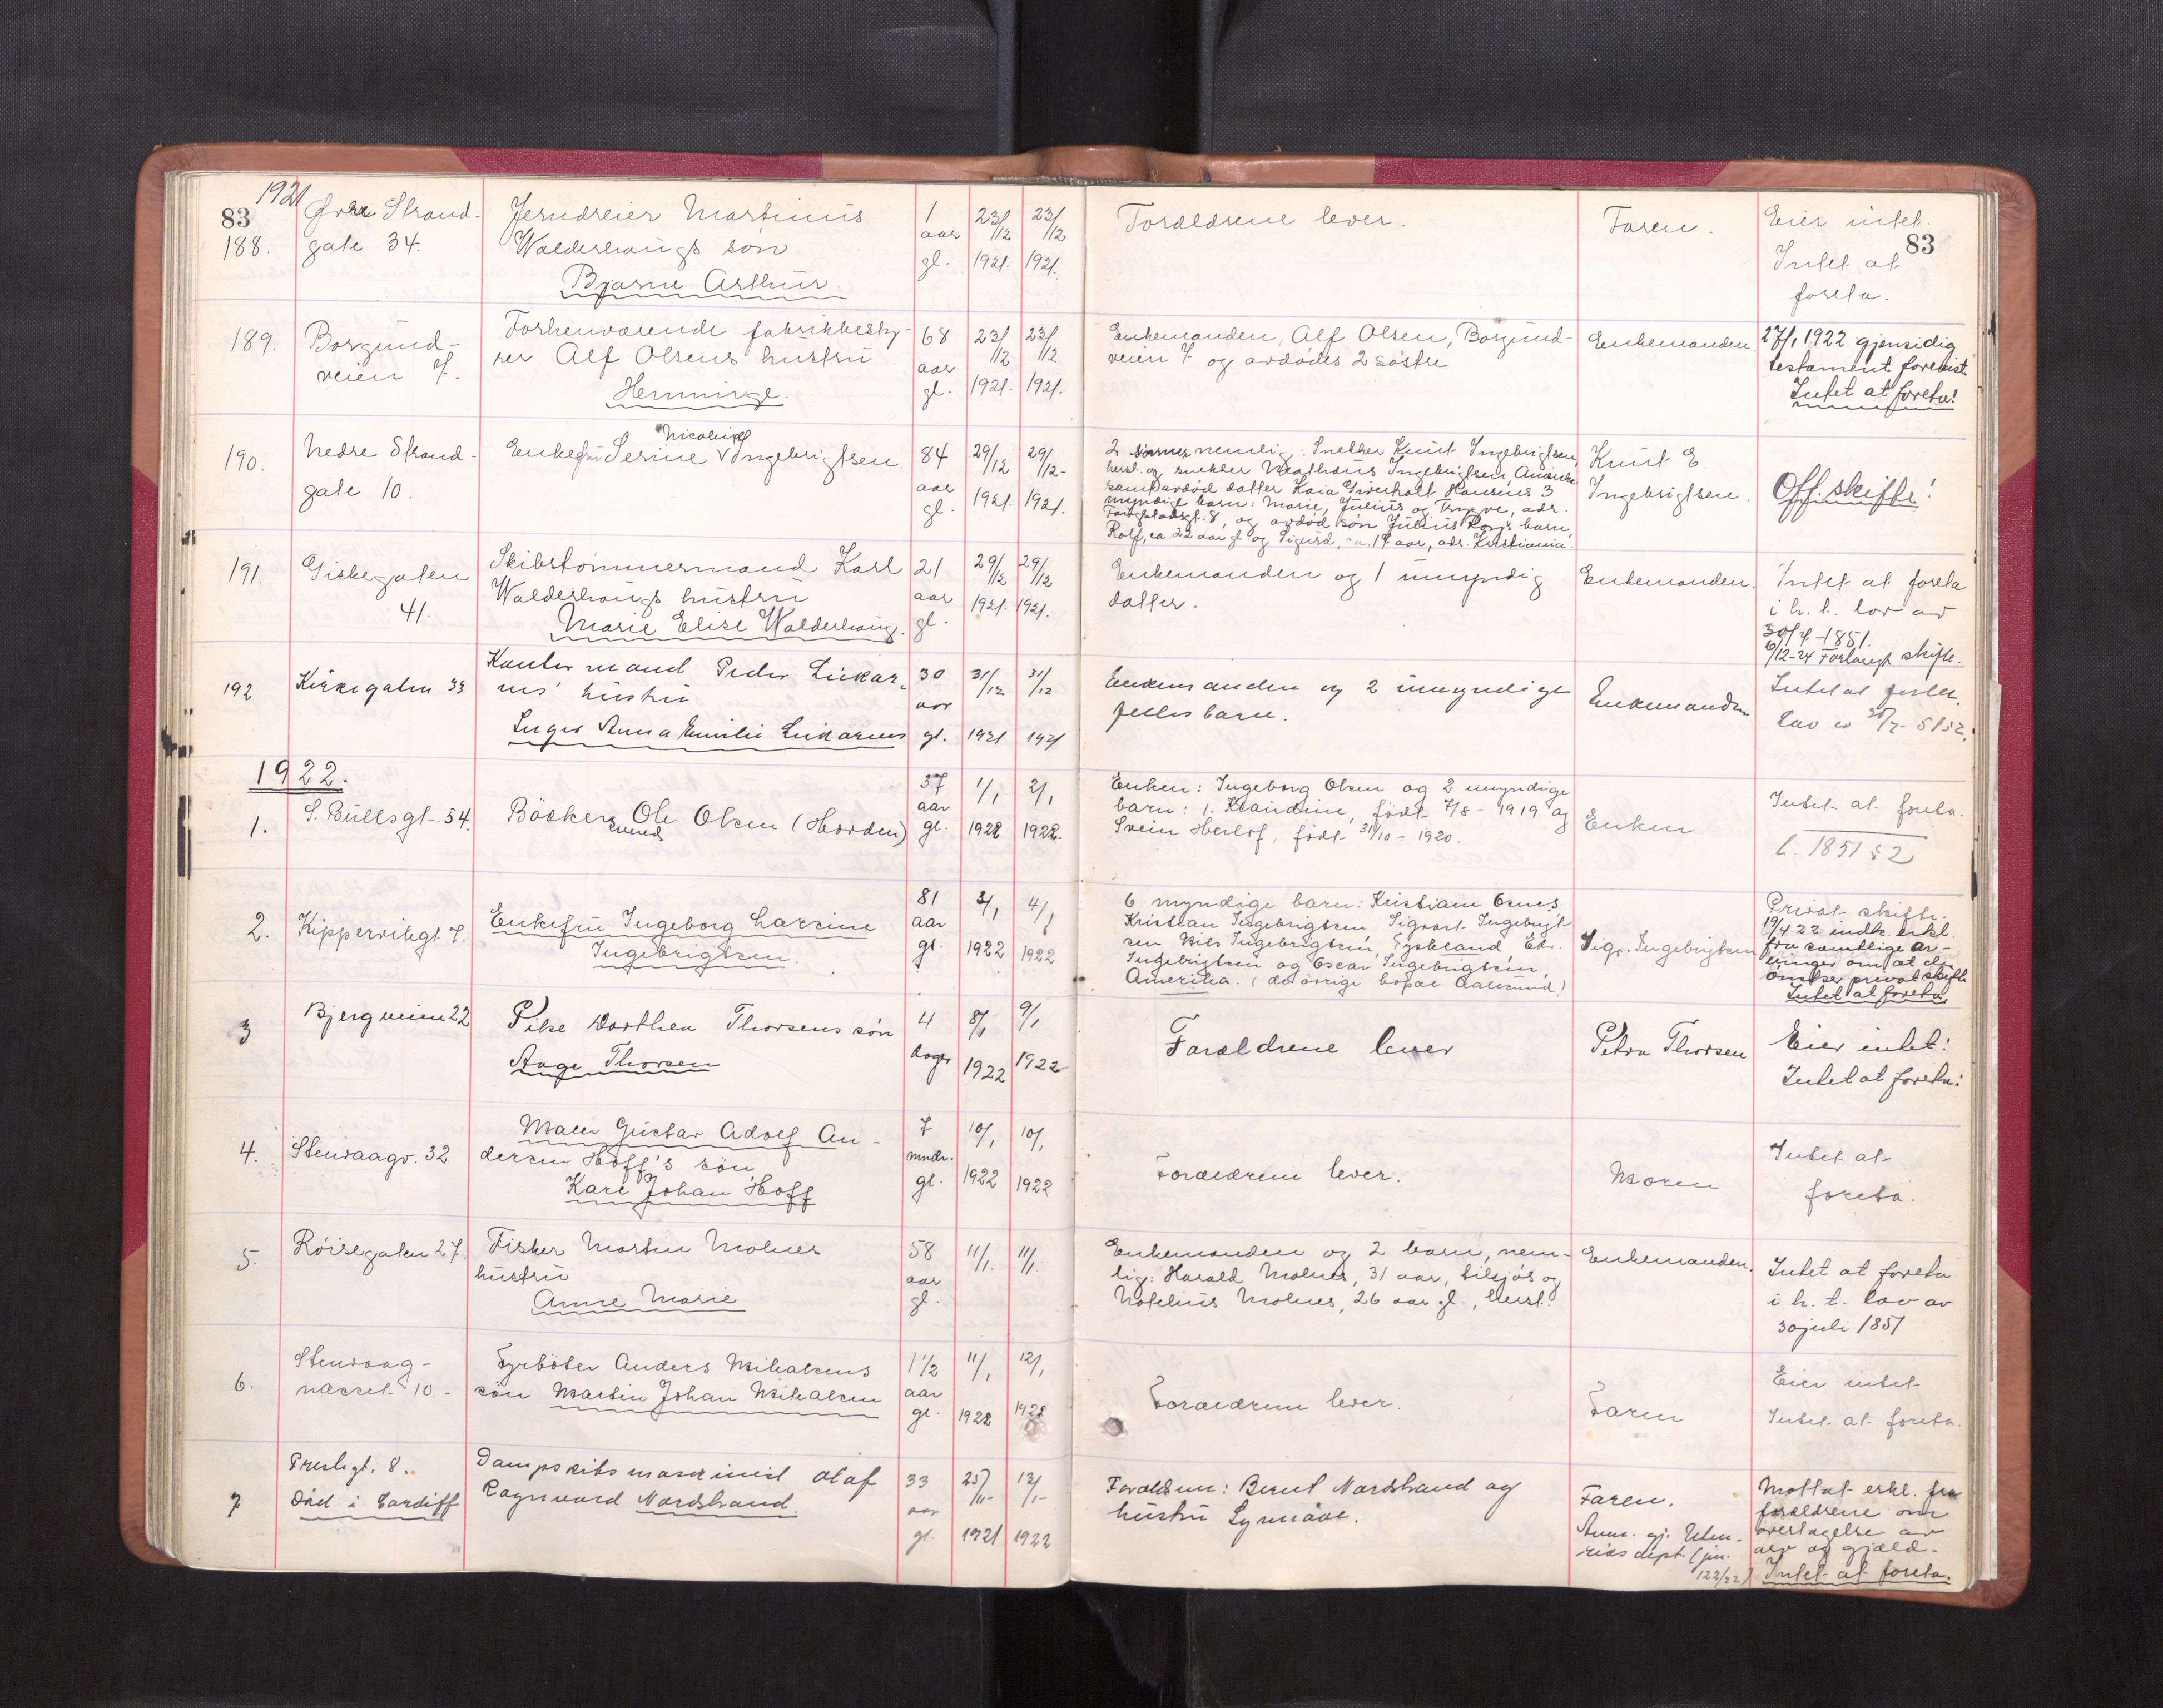 1921
83
83
188.
Øvre Strand-
gate 34.
Jerndreier Martinus
Walderhaugs søn
Bjarne Arthur.
1
aar
gl.
23/12
1921.
23/12
1921.
Forældrene lever.
Faren.
Eier intet.
Intet at
foreta.
189.
Borgund-
veien 7.
Forhenværende fabrikkbesty-
rer Alf Olsens hustru
Henninge.
68
aar
gl.
23/12
1921.
23/12
1921.
Enkemanden, Alf Olsen, Borgund-
veien 7 og avdødes 2 søstre
Enkemanden.
27/1 1922 gjensidig
testament forevist
Intet at foreta!
190.
Nedre Strand-
gate 10.
Nicoline
Enkefru Serine Ingebrigtsen.
84
aar
gl.
29/12
1921.
29/12-
1921.
2 sønner nemlig: Snekker Knut Ingebrigtsen,
herst. og snekker Mathæus Ingebrigtsen, Amerika
samt avdød datter Kaia Hansens 3
myndige barn: Marie, Julius og Trygve, adr.
8, og avdød søn Julius barn,
Rolf, ca. 22 aar gl og Sigurd, ca. 19 aar, adr. Kristiania.
Knut E.
Ingebrigtsen.
Off. skifte!
191.
Giskegaten
41.
Skibstømmermand Karl
Walderhaugs hustru
Marie Elise Walderhaug.
21
aar
gl.
29/12
1921.
29/12
1921.
Enkemanden og 1 umyndig
datter.
Enkemanden.
Intet at foreta
i h. t. lov av
30/7-1851.
6/12-24 Forlangt skifte.
192
Kirkegaten 33
Kontormand Peder
hustru
Inger Anna Emilie
30
aar
gl.
31/12
1921
31/12
1921
Enkemanden og 2 umyndige
fellesbarn.
Enkemanden
Intet at foreta.
Lov av 30/7-51 § 2.
1922.
1.
S. Bullsgt. 54.
Bøsker Ole Olsen (Hordin)
37
aar
gl.
1/1
1922
2/1
1922.
Enken: Ingeborg Olsen og 2 umyndige
barn: 1. Klaudine, født 7/8-1919 og
Svein Herlof, født 31/10-1920.
Enken
Intet at foreta.
L. 1851 § 2
2.
Kippervikgt. 7.
Enkefru Ingeborg Larsine
Ingebrigtsen.
81
aar
gl.
3/1
1922
4/1
1922
6 myndige barn: Kristiane Osnes
Kristian Ingebrigtsen Sigvart Ingebrigt-
sen Nils Ingebrigtsen, Tyskland Edv.
Ingebrigtsen og Oscar Ingebrigtsen,
Amerika. (de øvrige bopæl Aalesund)
Sigv. Ingebrigtsen
Privat skifte.
19/4 22 indk. erkl.
fra samtlige ar-
vinger om at de
ønsker privat skifte
Intet at foreta
3
Bjergveien 22
Pike Dorthea Thorsens søn
Aage Thorsen
4
dager
8/1
1922
9/1
1922
Forældrene lever
Petra Thorsen
Eier intet!
Intet at foreta!
4.
Stenvaagv. 32
Maler Gustav Adolf An-
dersen Hoff's søn
Kare Johan Hoff
7
mndr.
gl.
10/1
1922
10/1
1922
Forældrene lever.
Moren
Intet at
foreta.
5.
Røisegaten 27.
Fisker Martin Molnes
hustru
Anne Marie
58
aar
gl.
11/1.
11/1.
Enkemanden og 2 barn, nem-
lig: Harald Molnes, 31 aar, tilsjøs og
Notelius Molnes, 26 aar gl., herst.
Enkemanden.
Intet at foreta
i h. t. lov av
30 juli 1851
6.
Stenvaag-
næsset 10.-
Fyrbøter Anders Mikalsens
søn Martin Johan Mikalsen
1 1/2
aar
gl.
11/1
1922
12/1
1922
Forældrene lever.
Faren
Eier intet
Intet at foreta.
7
Prestegt. 8.
Død i Cardiff
Dampskibsmaskinist Olaf
Ragnvald Nordstrand.
33
aar
gl.
25/11-
1921
13/1-
1922
Forældrene: Bernt Nordstrand og
hustru Synnøve.
Faren.
Anm. gj. Uten-
riksdept. (jnr.
122/22)
Mottat erkl. fra
forældrene om
overtagelse av
arv og gjæld.
Intet at foreta.